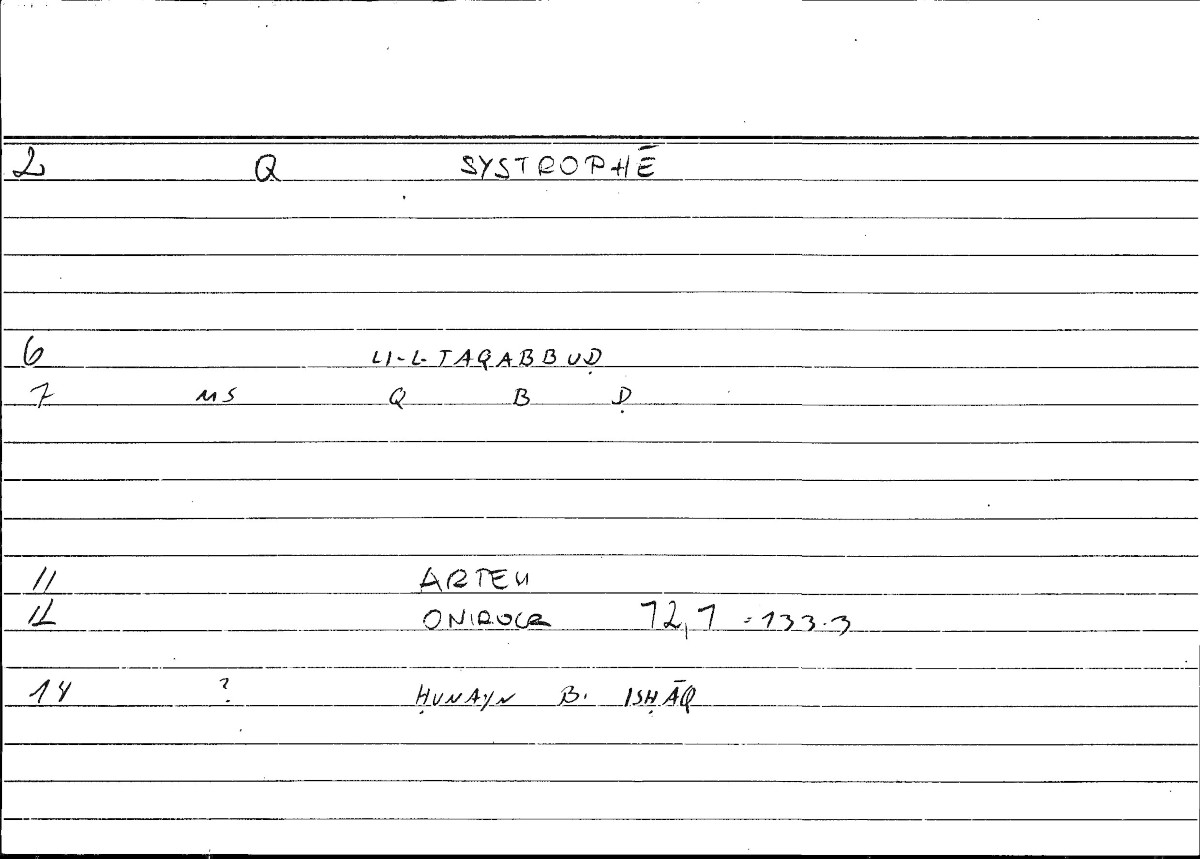 2 Q SYSTROPHĒ
6 LI-L-TAQABBUḌ
7 MS Q B Ḍ
11 ARTEM
12 ONIROCR 12,1 = 133.3
14 ? ḤUNAYN B. ISḤĀQ